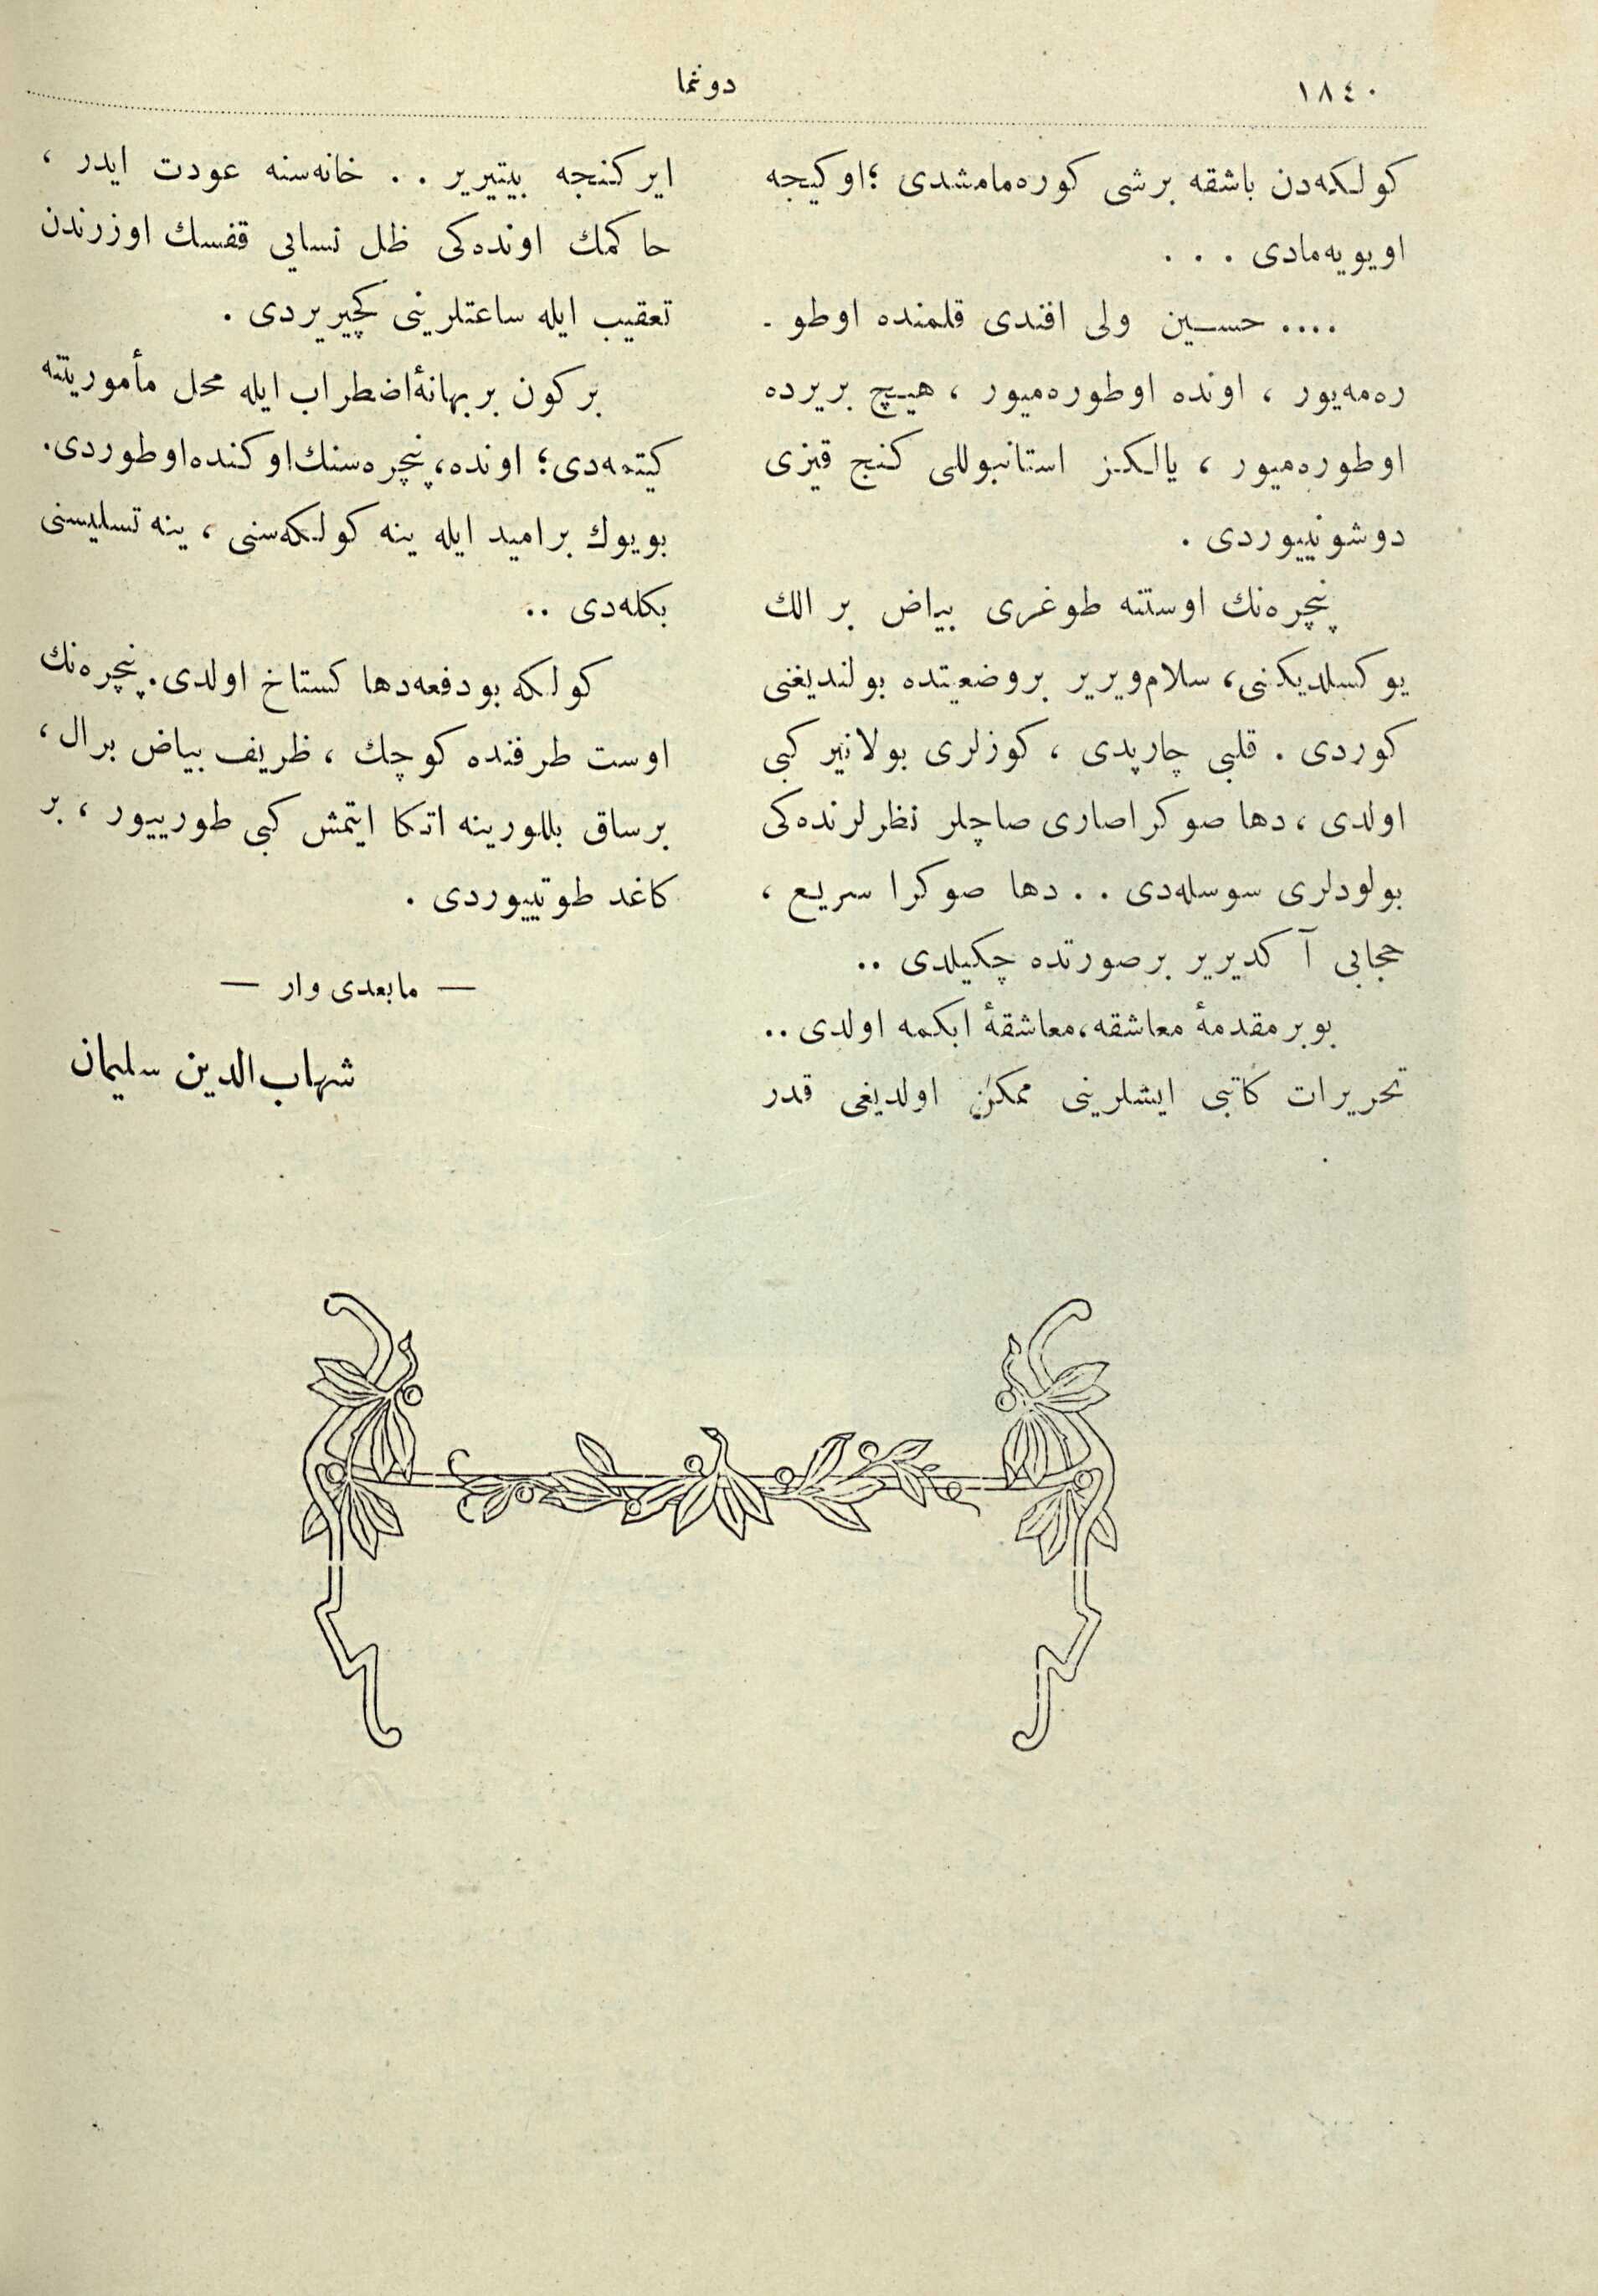 ١٨٤٠
دوننما
كولكه‌دن باشقه برشی كوره‌مامشدی ؛ اوكیجه
اویویه‌مادی . . .
.... حسین ولی افندی قلمنده اوطو -
ره‌مه‌یور ، اونده اوطوره‌میور ، هیچ بریرده
اوطوره‌میور ، یالكز استانبوللی كنج قیزی
دوشونییوردی .
پنجره‌نك اوستنه طوغری بیاض بر الك
یوكسلدیكنی، سلام‌ویریر بروضعیتده بولندیغنی
كوردی . قلبی چارپدی ، كوزلری بولانیر كبی
اولدی ، دها صوكراصاری صاچلر نظرلرنده‌كی
بولودلری سوسله‌دی . . دها صوكرا سریع ،
حجابی آكدیریر برصورتده چكیلدی ..
بوبرمقدمهٔ معاشقه، معاشقهٔ ابكمه اولدی ..
تحریرات كاتبی ایشلرینی ممكن اولدیغی قدر
ایركنجه بیتیریر . . خانه‌سنه عودت ایدر ،
حاكمك اونده‌كی ظل نسایی قفسك اوزرندن
تعقیب ایله ساعتلرینی كچیریردی .
بركون بربهانهٔ اضطراب ایله محل مأموریتنه
كیتمه‌دی؛ اونده، پنجره‌سنك اوكنده اوطوردی.
بویوك برامید ایله ینه كولكه‌سنی ، ینه تسلیسنی
بكله‌دی ..
كولكه بودفعه‌دها كستاخ اولدی. پنجره‌نك
اوست طرفنده كوچك ، ظریف بیاض برال ،
برساق بللورینه اتكا ایتمش كبی طورییور ، بر
كاغد طوتییوردی .
— مابعدی وار —
شهاب‌الدین سلیمان